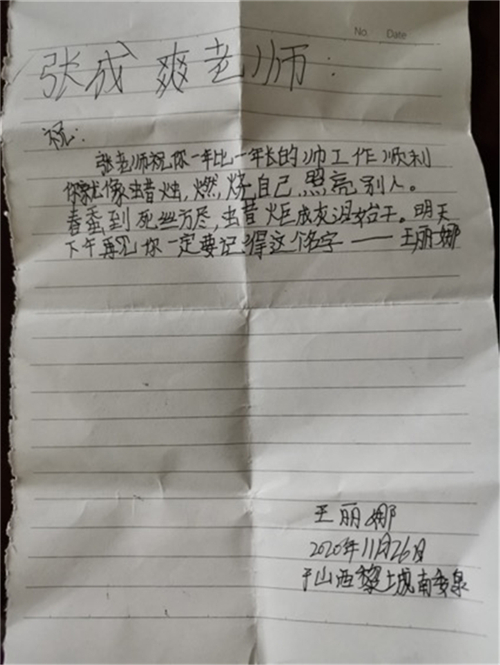 No. Date
张成爽老师：
祝：
张老师祝你一年比一年长的帅工作顺利
你就像蜡烛,燃烧自己照亮别人。
春蚕到死丝方尽,蜡炬成灰泪始干。明天
下午再见你一定要记得这个名字——王丽娜
王丽娜
2020年11月26日
于山西黎城南委泉